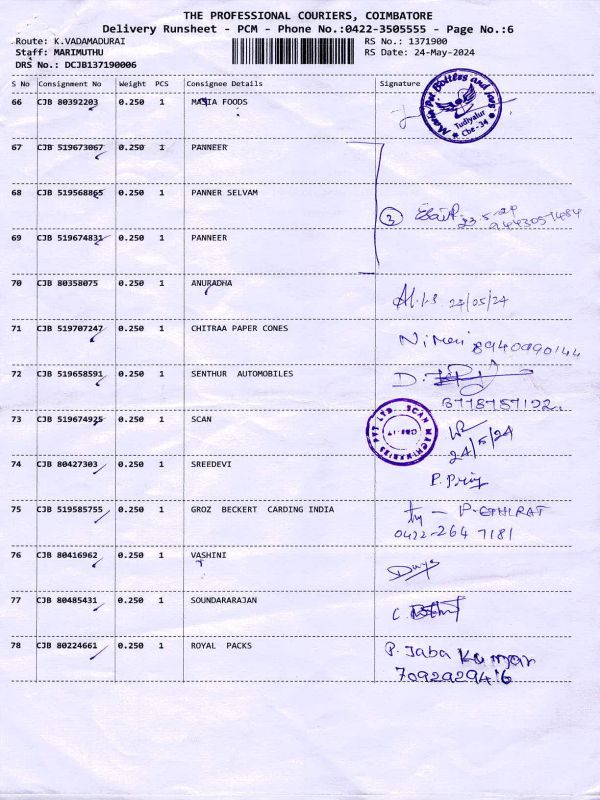 THE PROFESSIONAL COURIERS, COIMBATORE
Delivery Runsheet - PCM - Phone No.:0422-3505555 - Page No.:6
Route: K.VADAMADURAI RS No.: 1371900
Staff: MARIMUTHU RS Date: 24-May-2024
DRS No.: DCJB137190006
S No Consignment No Weight PCS Consignee Details Signature
66 CJB 80392203 0.250 1 MAJIA FOODS
Maria Pet Bottles and Jars
Tudiyalur
Cbe-34
67 CJB 519673067 0.250 1 PANNEER
68 CJB 519568865 0.250 1 PANNER SELVAM
3 23.5.24
9443057484
69 CJB 519674831 0.250 1 PANNEER
70 CJB 80358075 0.250 1 ANURADHA 24/05/24
71 CJB 519707247 0.250 1 CHITRAA PAPER CONES 8940090144
72 CJB 519658591 0.250 1 SENTHUR AUTOMOBILES
73 CJB 519674925 0.250 1 SCAN 24/5/24
SCAN MACHINERIES LTD
74 CJB 80427303 0.250 1 SREEDEVI P. Priy
75 CJB 519585755 0.250 1 GROZ BECKERT CARDING INDIA
0422-264 7181
76 CJB 80416962 0.250 1 VASHINI
77 CJB 80485431 0.250 1 SOUNDARARAJAN
78 CJB 80224661 0.250 1 ROYAL PACKS P. Jaba Kumar
7092929416